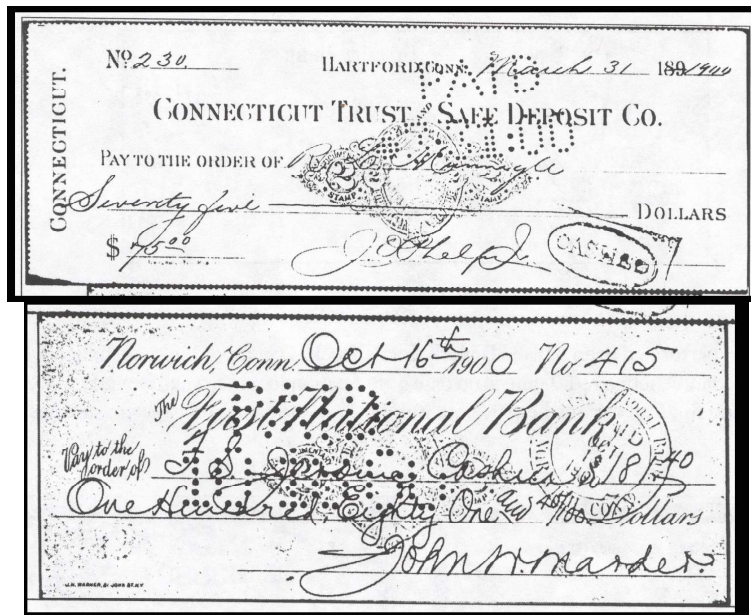 No. 230. HARTFORD, CONN. March 31 1891900
CONNECTICUT TRUST SAFE DEPOSIT CO.
PAY TO THE ORDER OF
Seventy five DOLLARS
$ 75 00 J. Phelps Jr.
CASHED
CONNECTICUT.
PAID
STAMP
STAMP
Norwich, Conn. Oct 16th 1900 No. 415
The First National Bank
Pay to the order of F. S. Cashier $ 181 40
One Hundred, Eighty One and 40/100 Dollars
John W. Marder.
J.H. WARNER, 51 JOHN ST. N.Y.